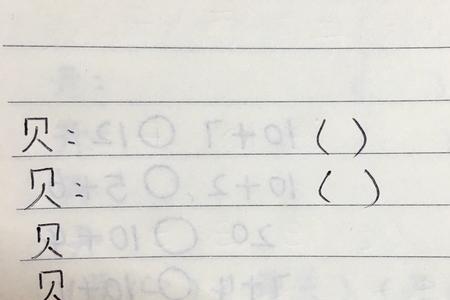 贝：（ ）
贝：（ ）
贝
贝